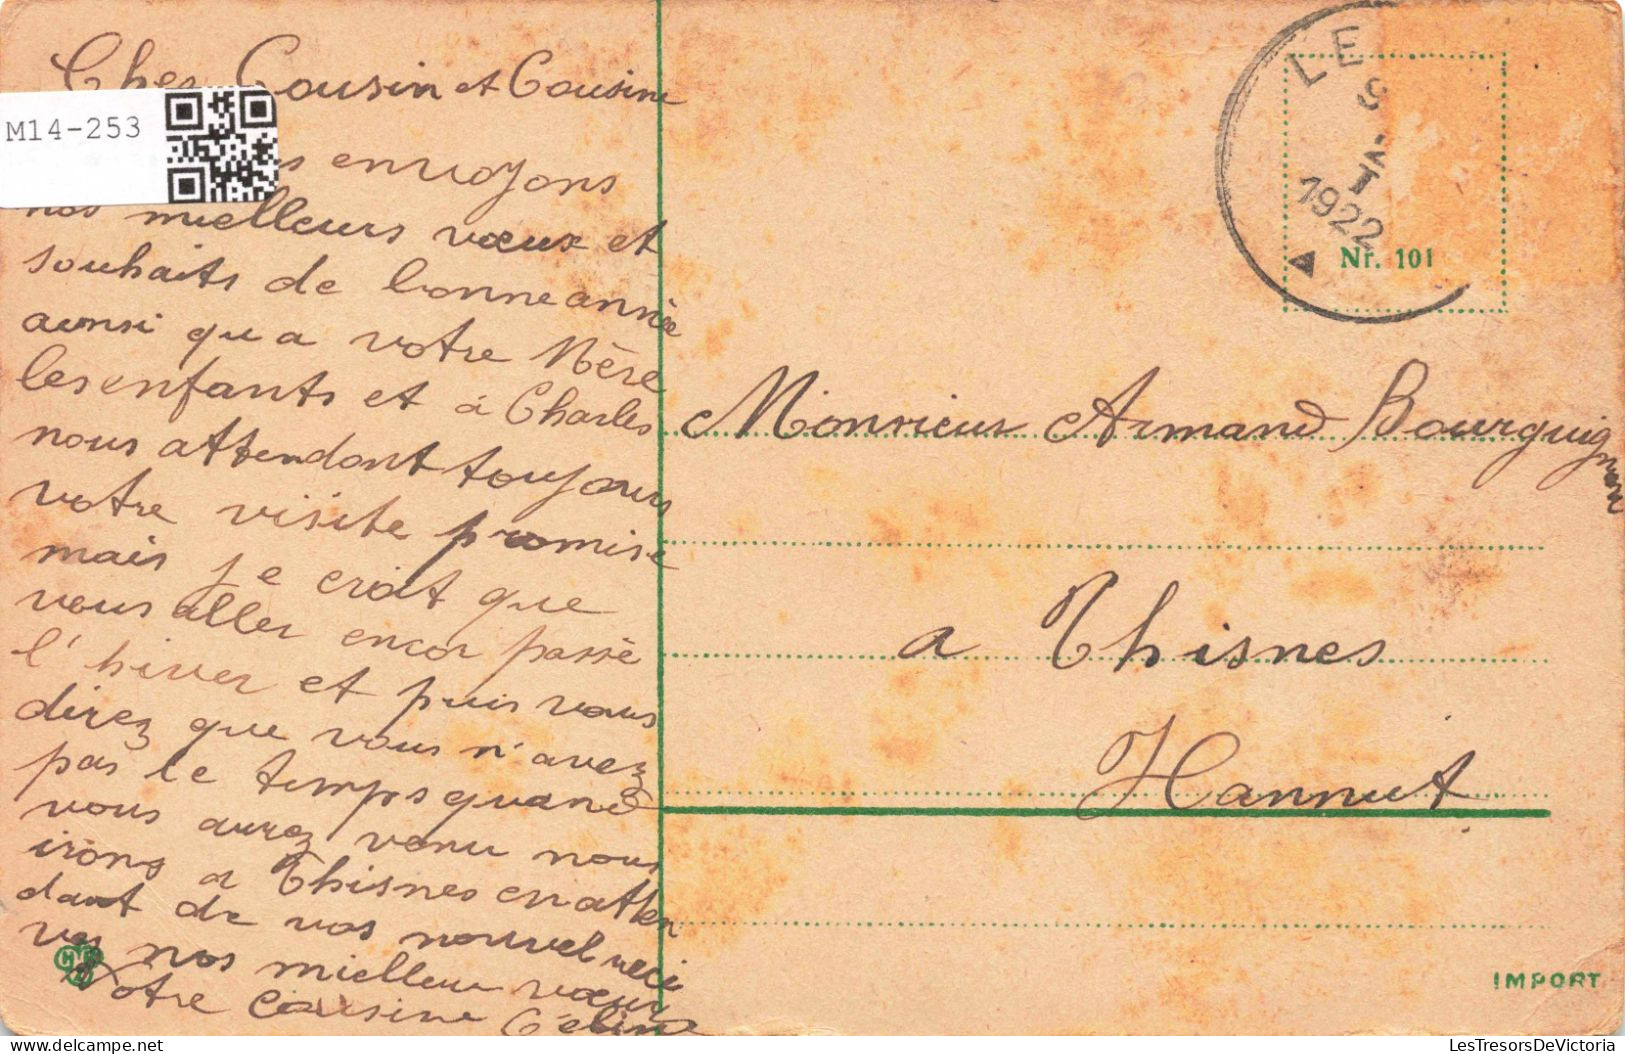 Cher Cousin et Cousine
M14-253
envoyons
nos mieilleurs vœux et
souhaits de bonne année
ainsi qu a votre Mère
les enfants et à Charles
nous attendont toujours
votre visite promise
mais je croit que
vous aller encor passè
l'hiver et puis vous
direz que vous n'avez
pas le temps quand
vous aurez venu nous
irons a Thisnes en atten
dant de vos nouvel rece
vez nos mieilleur vœux
Votre Cousine Céline
LE
8
1922
Nr. 101
Monsieur Armand Bourguignon
a Thisnes
Hannut
IMPORT
delcampe.net
LesTresorsDeVictoria